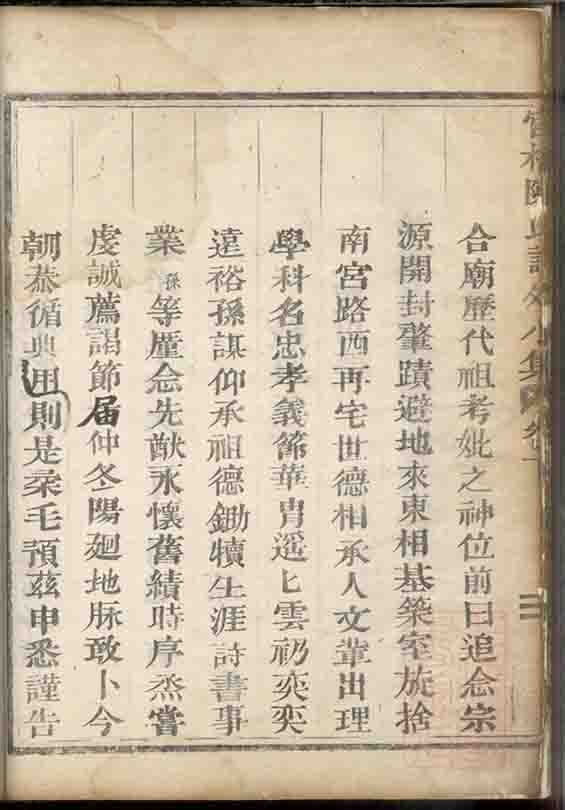 合廟歷代祖考妣之神位前曰追念宗
源開封肇蹟避地來東相基築室旋捨
南宮路西再宅世德相承人文輩出理
學科名忠孝義節華胄遥匕雲礽奕奕
遠裕孫謀仰承祖德鋤犢生涯詩書事
業孫等厪念先猷永懷舊績時序烝嘗
虔誠薦謁節届仲冬陽廻地脉敢卜今
朝恭循典用則是柔毛預兹申悉謹告